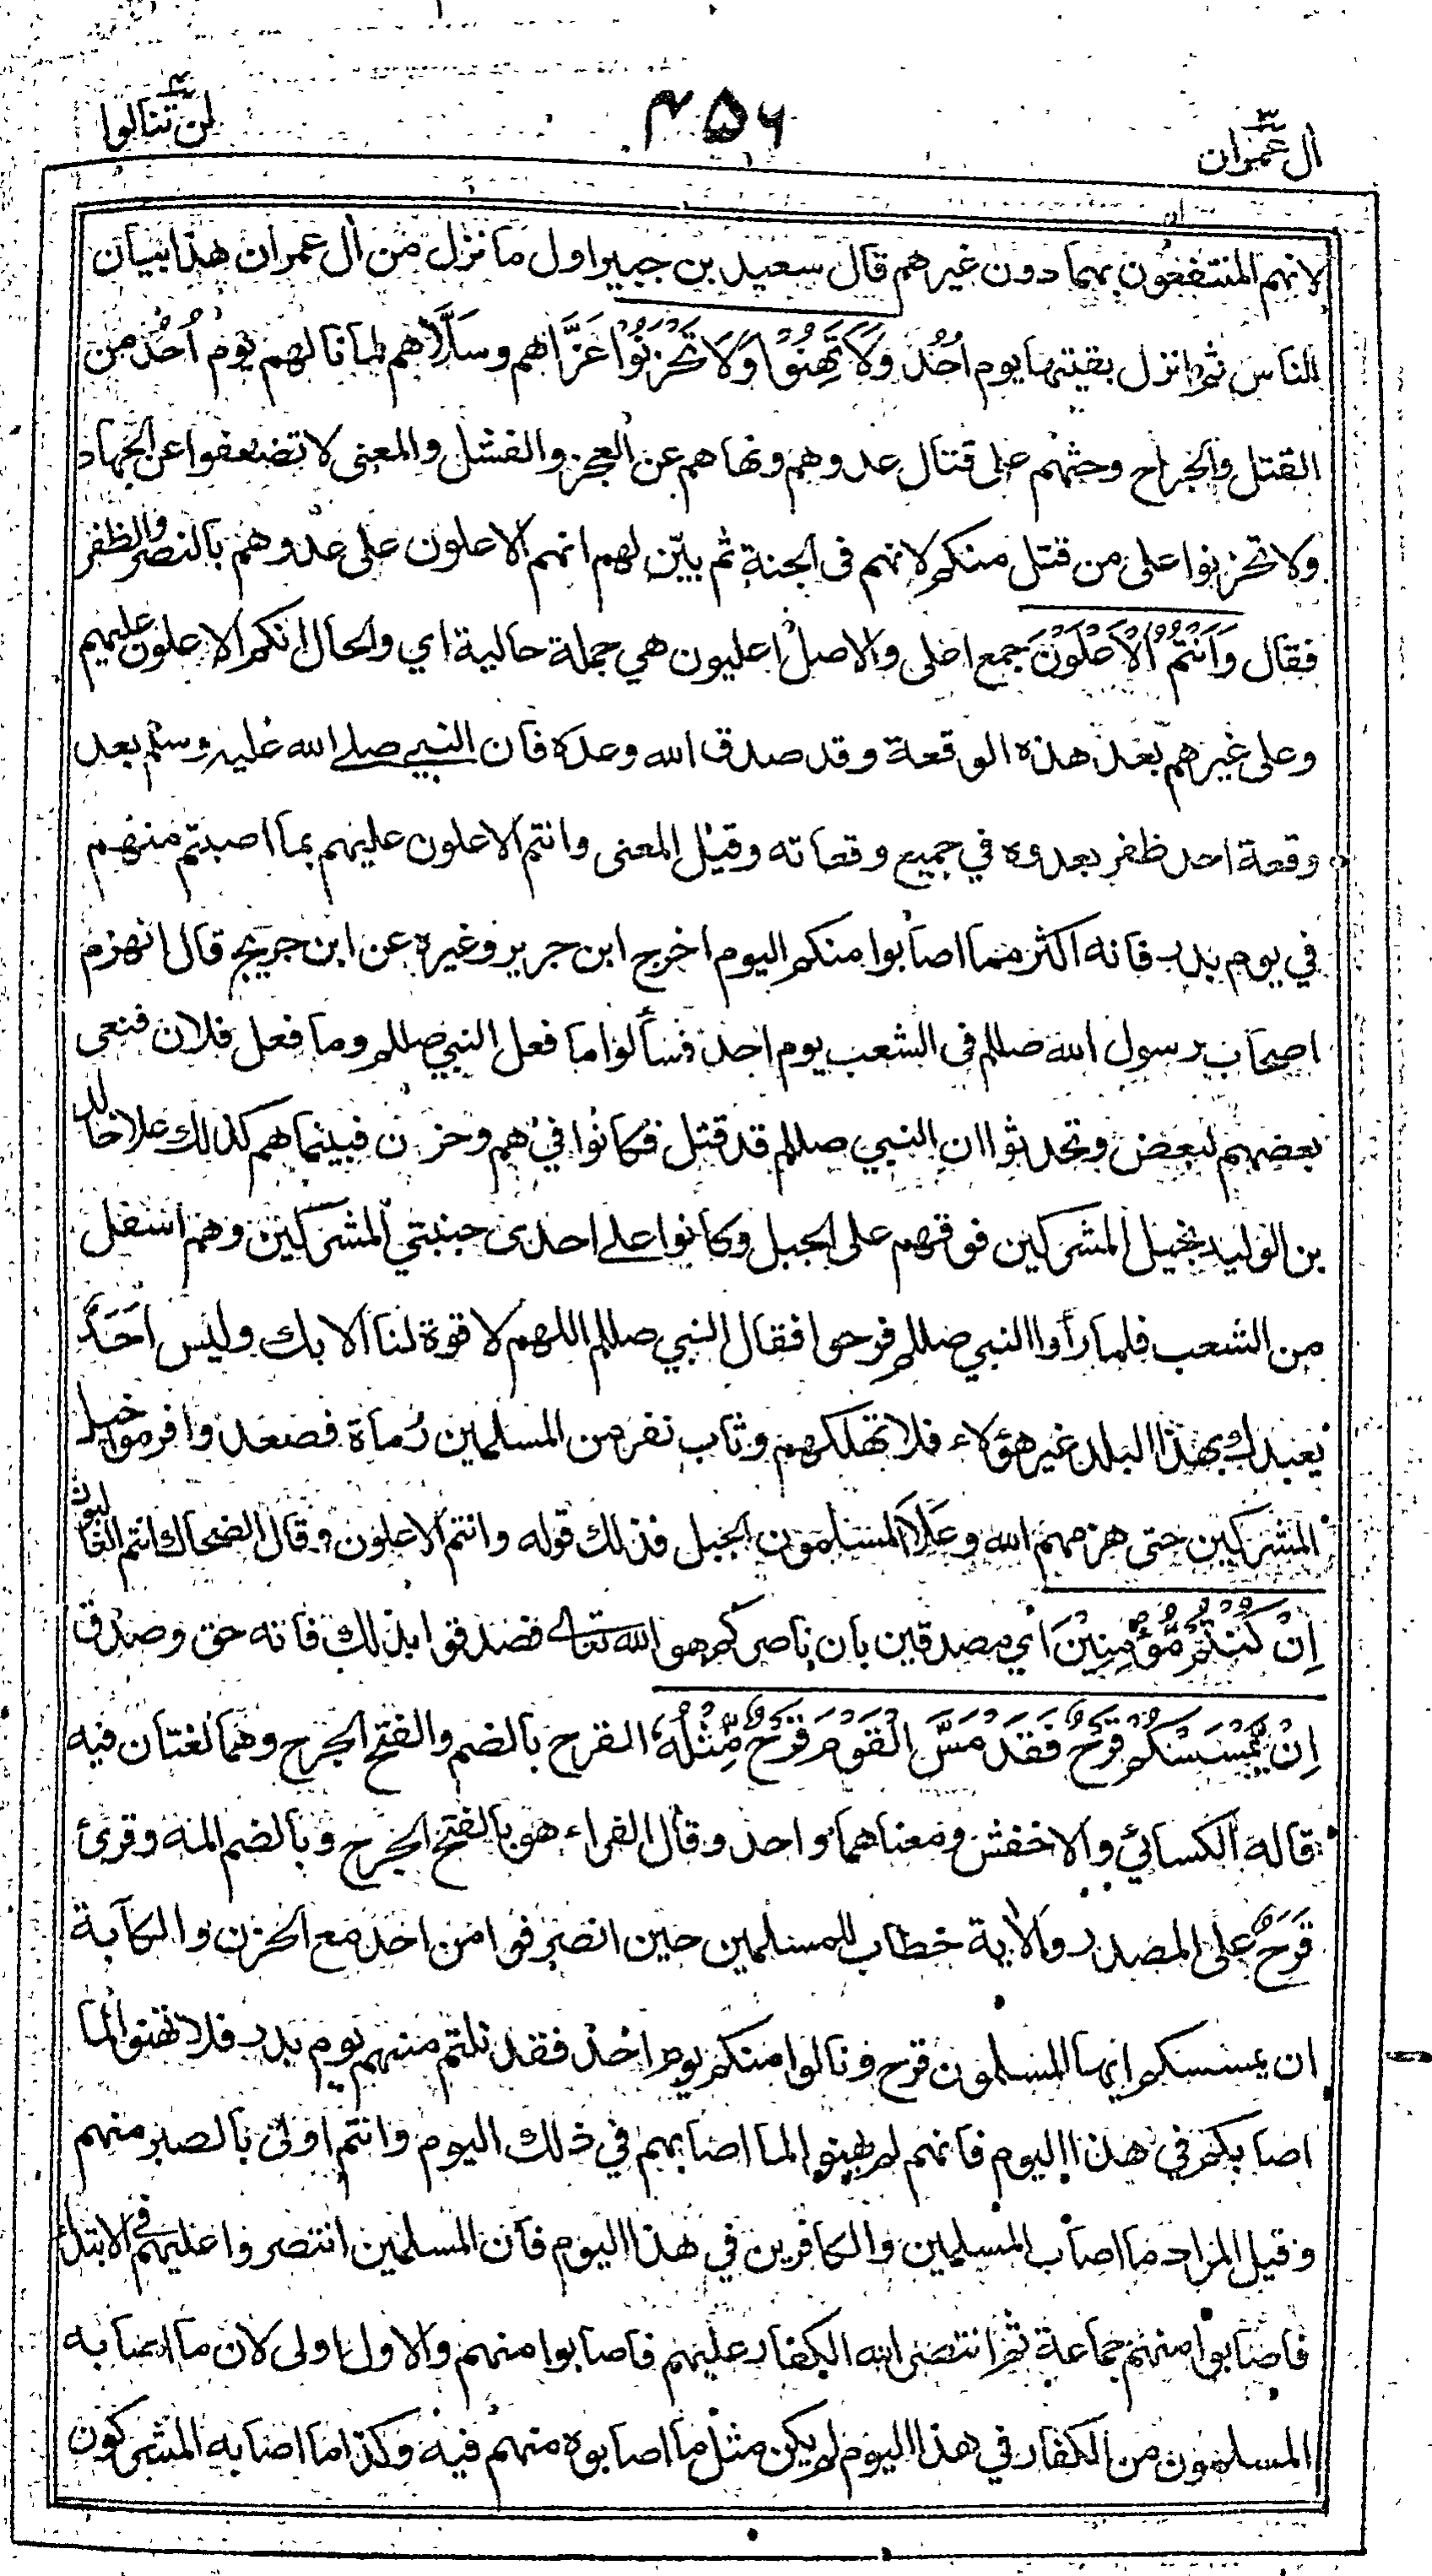 ال عمران ٣
٤٥٦
لن تنالوا ٤
لانهم المنتفعون بهما دون غيرهم قال سعيد بن جبير اول ما نزل من ال عمران هذا بيان
للناس ثم انزل بقيتها يوم احُد وَلَا تَهِنُوْا وَلَا تَحْزَنُوْا عَزَّاهم وسلَّاهم لما نالهم يوم اُحُد من
القتل والجراح وحثهم على قتال عدوهم ونهاهم عن العجز والفشل والمعنى لا تضعفوا عن الجهاد
ولا تحزنوا على من قتل منكم لانهم فى الجنة ثم بيّن لهم انهم الاعلون على عدوهم بالنصر والظفر
فقال وَاَنْتُمُ الْاَعْلَوْنَ جمع اعلى والاصل اعليون هي جملة حالية اي والحال انكم الاعلون عليهم
وعلى غيرهم بعد هذه الوقعة وقد صدق الله وعده فان النبي صلے الله عليه وسلم بعد
وقعة احد ظفر بعدوه في جميع وقعاته وقيل المعنى وانتم الاعلون عليهم بما اصبتم منهم
في يوم بدر فانه اكثر مما اصابوا منكم اليوم اخرج ابن جرير وغيره عن ابن جريج قال انهزم
اصحاب رسول الله صللم فى الشعب يوم احد فسألوا ما فعل النبي صللم وما فعل فلان فنعى
بعضهم لبعض وتحدثوا ان النبي صللم قد قتل فكانوا في هم وحزن فبينما هم كذلك علا خالد
بن الوليد بخيل المشركين فوقهم على الجبل وكانوا علے احدى جنبتي المشركين وهم اسفل
من الشعب فلما رأوا النبي صللم فرحوا فقال النبي صللم اللهم لا قوة لنا الا بك وليس احَدٌ
يعبدك بهذا البلد غير هؤلاء فلا تهلكهم وثاب نفر من المسلمين رُماة فصعدوا فرموا خيل
المشركين حتى هزمهم الله وعلا المسلمون الجبل فذلك قوله وانتم الاعلون وقال الضحاك انتم الغالبون
اِنْ كُنْتُمْ مُّؤْمِنِيْنَ اي مصدقين بان ناصركم هو الله تعالے فصدقوا بذلك فانه حق وصدق
اِنْ يَّمْسَسْكُمْ قَرْحٌ فَقَدْ مَسَّ الْقَوْمَ قَرْحٌ مِّثْلُهٗ القرح بالضم والفتح الجرح وهما لغتان فيه
قاله الكسائي والاخفش ومعناهما واحد وقال الفراء هو بالفتح الجرح وبالضم المه وقرئ
قَرَحٌ على المصدر والاية خطاب للمسلمين حين انصرفوا من احد مع الحزن والكآبة
ان يمسسكم ايها المسلمون قرح ونالوا منكم يوم احد فقد نلتم منهم يوم بدر فلا تهنوا لما
اصابكم في هذا اليوم فانهم لم يهنوا لما اصابهم في ذلك اليوم وانتم اولى بالصبر منهم
وقيل المراد ما اصاب المسلمين والكافرين في هذا اليوم فان المسلمين انتصروا عليهم فى الابتداء
فاصابوا منهم جماعة ثم انتصر الكفار عليهم فاصابوا منهم والاول اولى لان ما اصابه
المسلمون من الكفار في هذا اليوم لم يكن مثل ما اصابوه منهم فيه وكذا ما اصابه المشركون